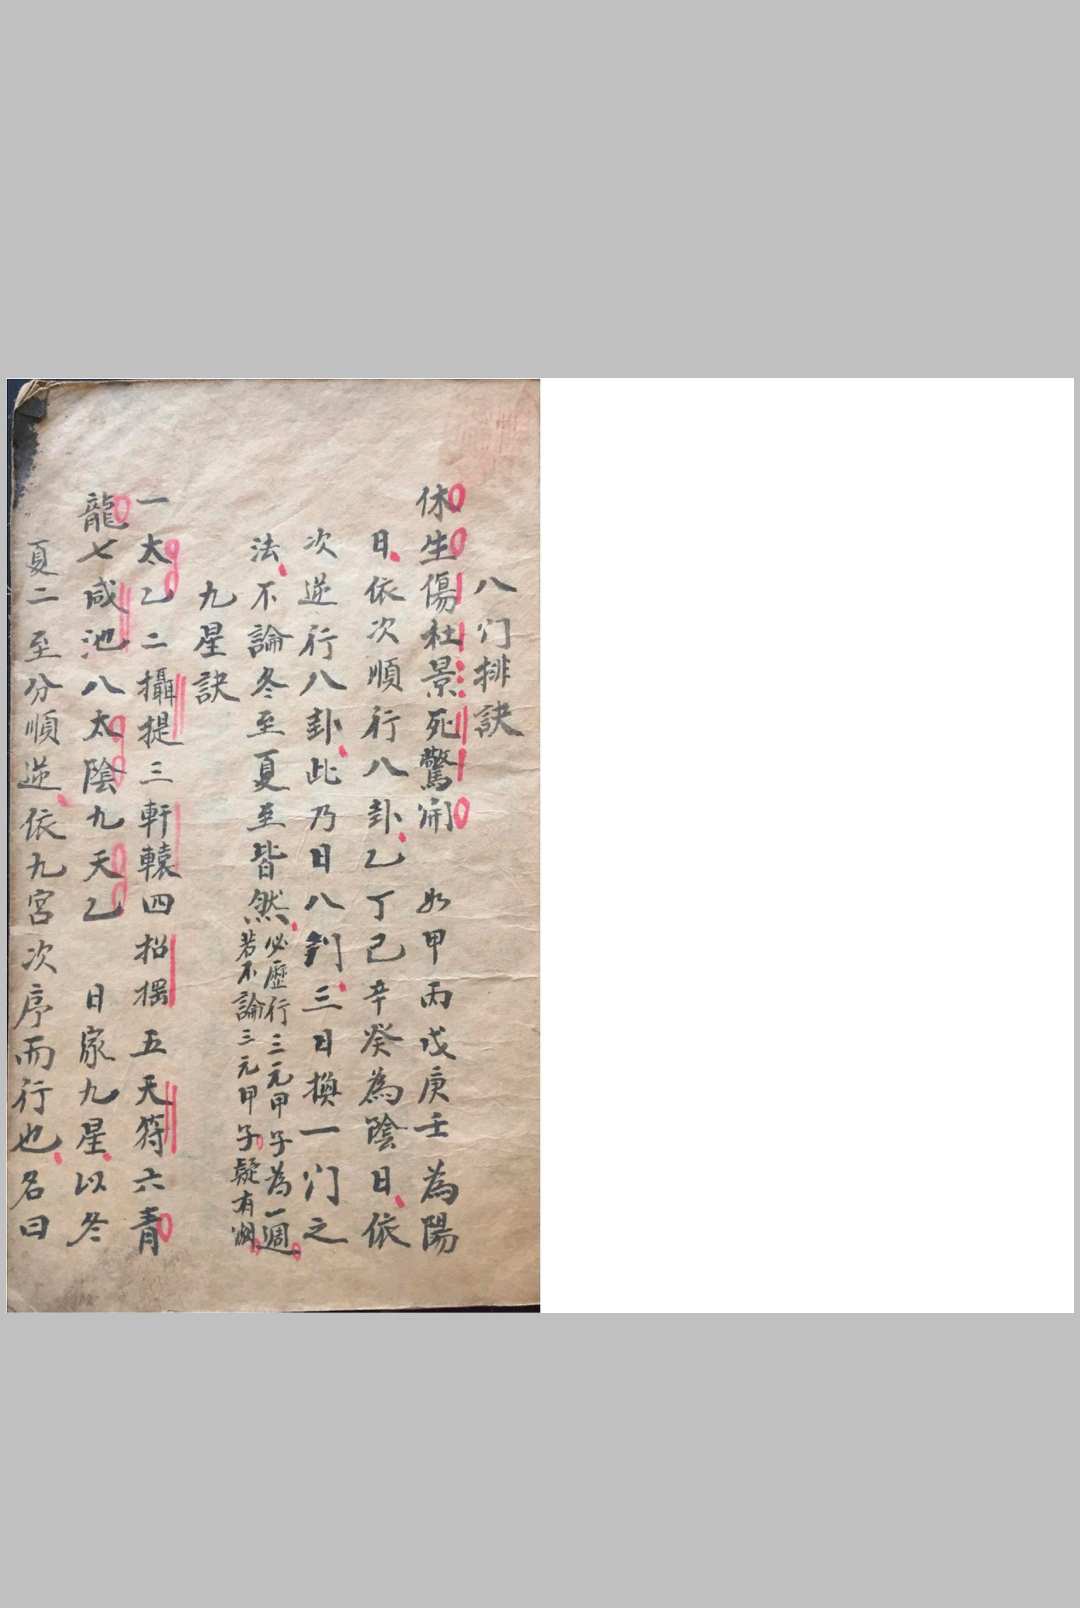 八门排訣
休生傷杜景死驚開　如甲丙戊庚壬為陽
日依次順行八卦乙丁己辛癸為陰日依
次逆行八卦此乃日八到三日換一门之
法不論冬至夏至皆然必歷行三元甲子為一週若不論三元甲子疑有
九星訣
一太乙二攝提三軒轅四招搖五天符六青
龍七咸池八太陰九天乙　日家九星以冬
夏二至分順逆依九宮次序而行也名曰